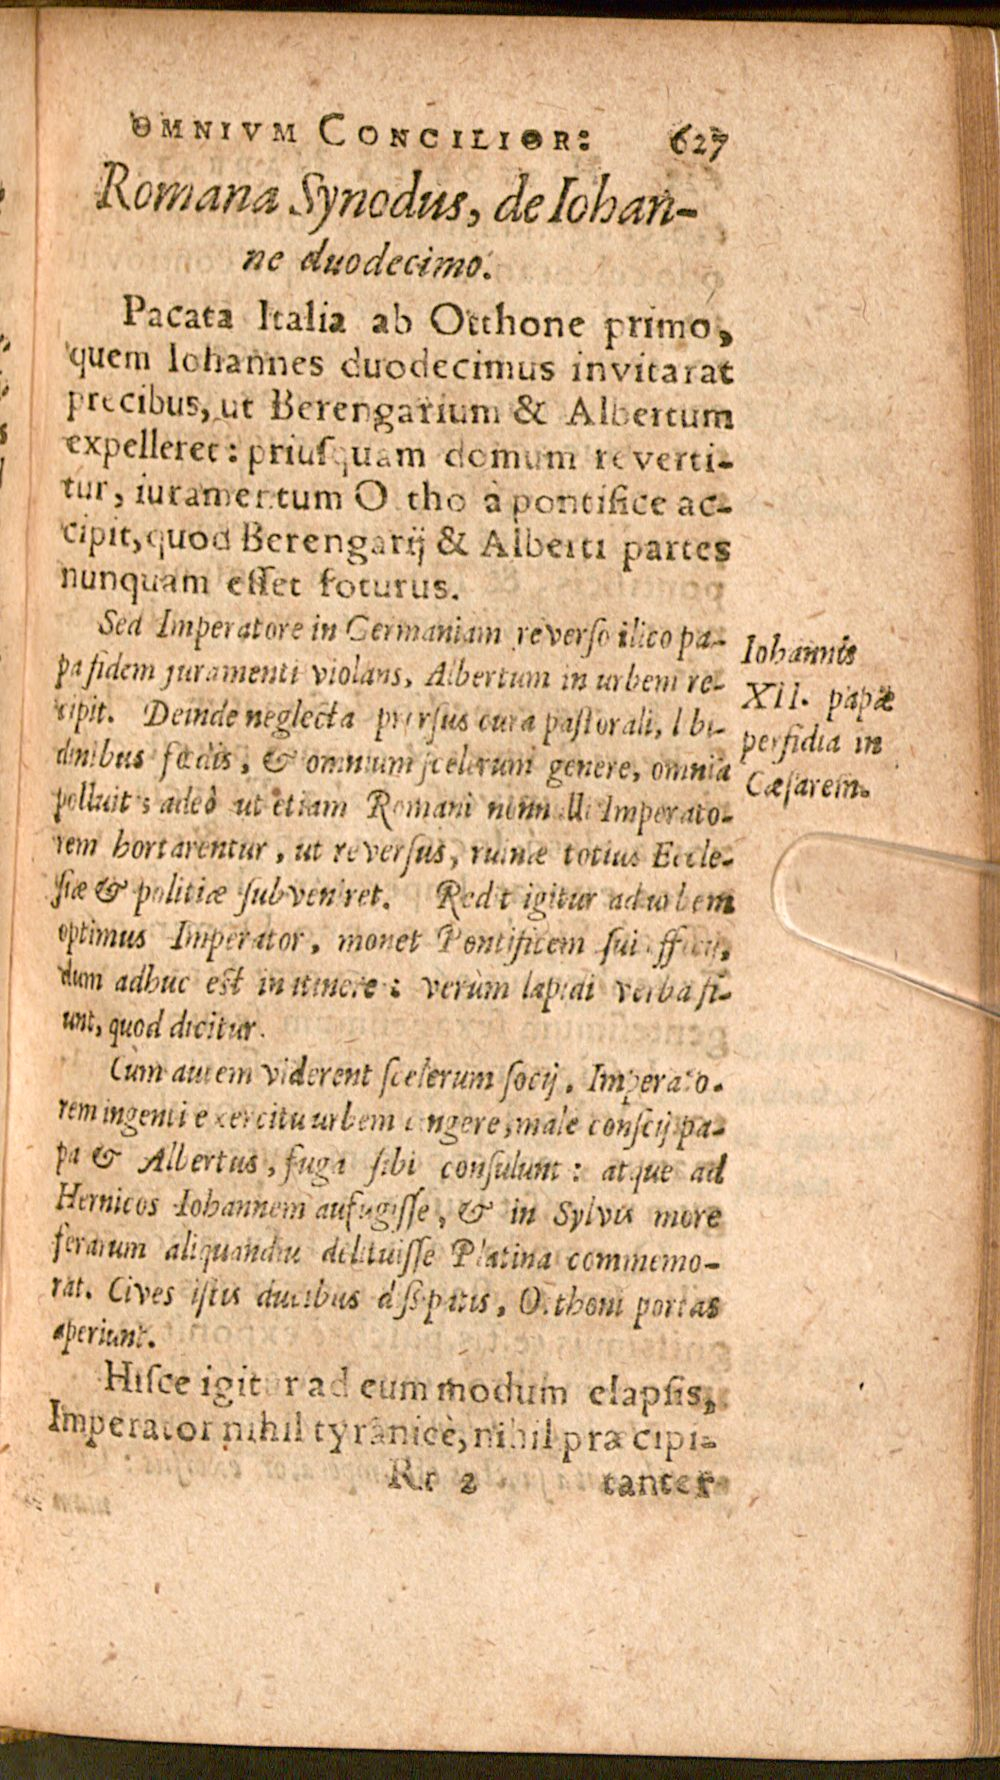 OMNIVM CONCILIOR: 627
Romana Synodus, de Iohan-
ne duodecimo.
Pacata Italia ab Otthone primo,
quem Iohannes duodecimus invitarat
precibus, ut Berengarium & Albertum
expelleret: priuſquam domum reverti-
tur, iuramentum Ottho à pontifice ac-
cipit, quod Berengarij & Alberti partes
nunquam eſſet foturus.
Sed Imperatore in Germaniam reverſo ilico pa-
pa fidem juramenti violans, Albertum in urbem re-
cipit. Deinde neglecta prorſus cura paſtorali, libi-
dinibus fœdis, & omnium ſcelerum genere, omnia
polluit; adeò ut etiam Romani nonnulli Imperato-
rem hortarentur, ut reverſus, ruinæ totius Eccle-
ſiæ & politiæ ſubveniret. Redit igitur ad urbem
optimus Imperator, monet Pontificem ſui officij,
dum adhuc eſt in itinere: verùm lapidi verba fi-
unt, quod dicitur.
Cùm autem viderent ſcelerum ſocij, Imperato-
rem ingenti exercitu urbem cingere, male conſcij pa-
pa & Albertus, fuga ſibi conſulunt: atque ad
Hernicos Iohannem aufugiſſe, & in Sylvis more
ferarum aliquandiu delituiſſe Platina commemo-
rat. Cives iſtis ducibus diſſipatis, Otthoni portas
aperiunt.
Hiſce igitur ad eum modum elapſis,
Imperator nihil tyrānicè, nihil præcipi-
Rr 2 tanter
Iohannis
XII. papæ
perfidia in
Cæſarem.